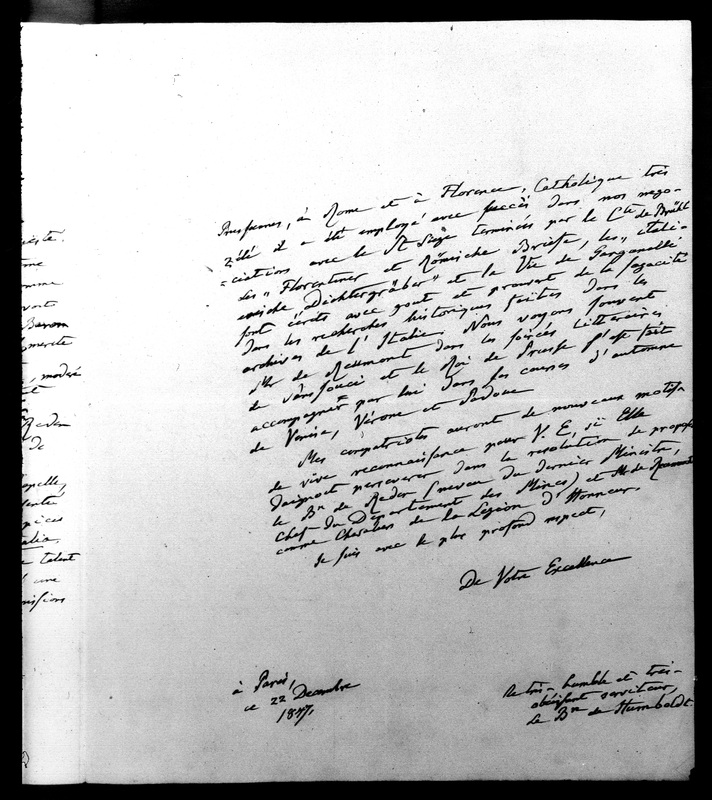 este.
me
mme
vorts
Baron
merite
, modéré
Reden
de
apelle,
senté
pices
alia,
e talent
d'une
missions
Prussiennes, à Rome et à Florence, Catholique très
zélé il a été employé avec succès dans nos nego-
=ciations avec le St Siège terminées par le Cte de Brühl
Les „Florentiner et Römische Briefe, les „italie-
enische Dichtergräber" et la Vie de Ganganelli
sont écrits avec gout et prouvent de la sagacité
dans les recherches historiques faites dans les
archives de l'Italie. Nous voyons souvent
Mr de Reumont dans les soirées litteraires
de Sans souci et le Roi de Prusse s'est fait
accompagner par lui dans ses courses d'automne
de Venise, Vérone et Padoue
Mes compatriotes auront de nouveaux motifs
de vive reconnaissance pour V. E., si Elle
daignait perseverer dans la resolution de proposer
le Bn de Reden (neveu du dernier Ministre,
Chef du Département des Mines) et Mr de Reumont
comme Chevaliers de la Legion d'Honneur.
Je suis avec le plus profond respect,
De Votre Excellence
à Paris,
ce 22 Decembre
1847.
le très-humble et très-
obéissant serviteur
Le Bn de Humboldt.